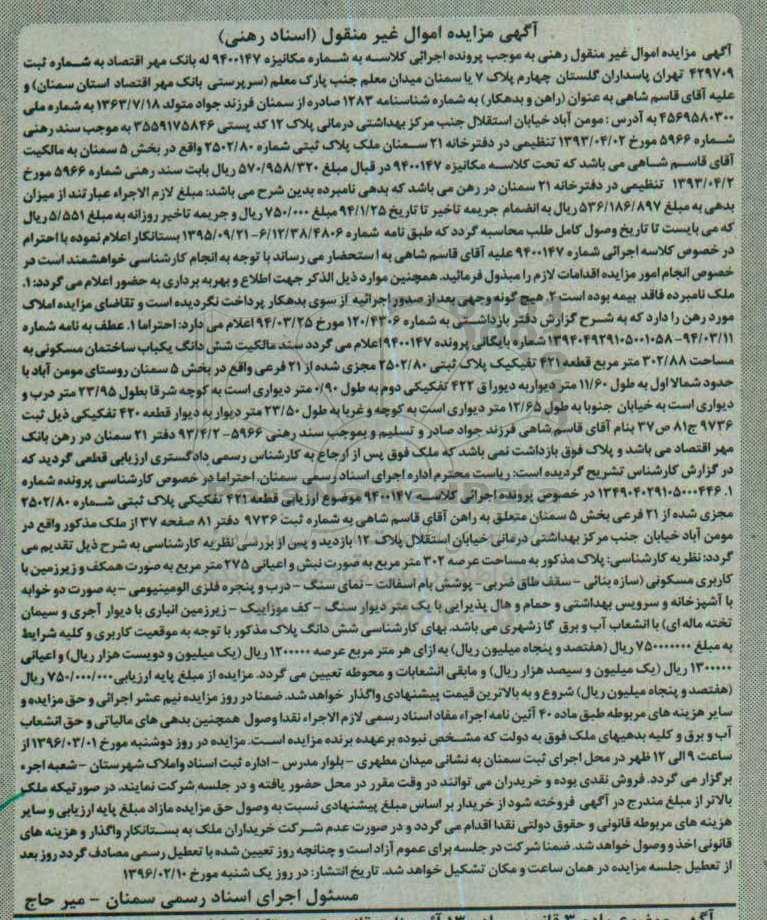 آگهی مزایده اموال غیر منقول (اسناد رهنی)
آگهی مزایده اموال غیر منقول رهنی به موجب پرونده اجرائی کلاسه به شماره مکانیزه ۹۴۰۰۱۴۷ له بانک مهر اقتصاد به شماره ثبت
۴۲۹۷۰۹ تهران پاسداران گلستان چهارم پلاک ۷ یا سمنان میدان معلم جنب پارک معلم (سرپرستی بانک مهر اقتصاد استان سمنان) و
علیه آقای قاسم شاهی به عنوان (راهن و بدهکار) به شماره شناسنامه ۱۲۸۳ صادره از سمنان فرزند جواد متولد ۱۳۶۳/۷/۱۸ به شماره ملی
۴۵۶۹۵۸۰۳۰۰ به آدرس : مومن آباد خیابان استقلال جنب مرکز بهداشتی درمانی پلاک ۱۲ کد پستی ۳۵۵۹۱۷۵۸۴۶ به موجب سند رهنی
شماره ۵۹۶۶ مورخ ۱۳۹۳/۰۴/۰۲ تنظیمی در دفترخانه ۲۱ سمنان ملک پلاک ثبتی شماره ۲۵۰۲/۸۰ واقع در بخش ۵ سمنان به مالکیت
آقای قاسم شاهی می باشد که تحت کلاسه مکانیزه ۹۴۰۰۱۴۷ در قبال مبلغ ۵۷۰/۹۵۸/۳۲۰ ریال بابت سند رهنی شماره ۵۹۶۶ مورخ
۱۳۹۳/۰۴/۲ تنظیمی در دفترخانه ۲۱ سمنان در رهن می باشد که بدهی نامبرده بدین شرح می باشد: مبلغ لازم الاجراء عبارتند از میزان
بدهی به مبلغ ۵۳۶/۱۸۶/۸۹۷ ریال به انضمام جریمه تاخیر تا تاریخ ۹۴/۱/۲۵ مبلغ ۷۵۰/۰۰۰ ریال و جریمه تاخیر روزانه به مبلغ ۵/۵۵۱ ریال
که می بایست تا تاریخ وصول کامل طلب محاسبه گردد که طبق نامه شماره ۶/۱۲/۳۸/۴۸۰۶-۱۳۹۵/۰۹/۲۱ بستانکار اعلام نموده با احترام
در خصوص کلاسه اجرائی شماره ۹۴۰۰۱۴۷ علیه آقای قاسم شاهی به استحضار می رساند با توجه به انجام کارشناسی خواهشمند است در
خصوص انجام امور مزایده اقدامات لازم را مبذول فرمائید. همچنین موارد ذیل الذکر جهت اطلاع و بهره برداری به حضور اعلام می گردد: ۱.
ملک نامبرده فاقد بیمه بوده است ۲. هیچ گونه وجهی بعد از صدور اجرائیه از سوی بدهکار پرداخت نگردیده است و تقاضای مزایده املاک
مورد رهن را دارد که به شرح گزارش دفتر بازداشتی به شماره ۱۲۰/۴۳۰۶ مورخ ۹۴/۰۳/۲۵ اعلام می دارد: احتراما ۱. عطف به نامه شماره
۹۴/۰۳/۱۱-۱۳۹۴۰۴۹۲۹۱۰۵۰۰۱۰۵۸ شماره بایگانی پرونده ۹۴۰۰۱۴۷ اعلام می گردد سند مالکیت شش دانگ یکباب ساختمان مسکونی به
مساحت ۳۰۲/۸۸ متر مربع قطعه ۴۲۱ تفیکیک پلاک ثبتی ۲۵۰۲/۸۰ مجزی شده از ۲۱ فرعی واقع در بخش ۵ سمنان روستای مومن آباد با
حدود شمالا اول به طول ۱۱/۶۰ متر دیواریه دیورا ق ۴۲۲ تفکیکی دوم به طول ۰/۹۰ متر دیواری است به کوچه شرقا بطول ۲۳/۹۵ متر درب و
دیواری است به خیابان جنوبا به طول ۱۲/۶۵ متر دیواری است به کوچه و غربا به طول ۲۳/۵۰ متر دیوار به دیوار قطعه ۴۲۰ تفکیکی ذیل ثبت
۹۷۳۶ ج۸۱ ص۳۷ بنام آقای قاسم شاهی فرزند جواد صادر و تسلیم و بموجب سند رهنی ۵۹۶۶-۹۳/۴/۲ دفتر ۲۱ سمنان در رهن بانک
مهر اقتصاد می باشد و پلاک فوق بازداشت نمی باشد که ملک فوق پس از ارجاع به کارشناس رسمی دادگستری ارزیابی قطعی گردید که
در گزارش کارشناس تشریح گردیده است: ریاست محترم اداره اجرای اسناد رسمی سمنان. احتراما در خصوص کارشناسی پرونده شماره
۱۳۴۹۰۴۰۲۹۱۰۵۰۰۰۴۴۶ .۱ در خصوص پرونده اجرائی کلاسه ۹۴۰۰۱۴۷ موضوع ارزیابی قطعه ۴۲۱ تفکیکی پلاک ثبتی شماره ۲۵۰۲/۸۰
مجزی شده از ۲۱ فرعی بخش ۵ سمنان متعلق به راهن آقای قاسم شاهی به شماره ثبت ۹۷۳۶ دفتر ۸۱ صفحه ۳۷ از ملک مذکور واقع در
مومن آباد خیابان جنب مرکز بهداشتی درمانی خیابان استقلال پلاک ۱۲ بازدید و پس از بررسی نظریه کارشناسی به شرح ذیل تقدیم می
گردد: نظریه کارشناسی: پلاک مذکور به مساحت عرصه ۳۰۲ متر مربع به صورت نبش و اعیانی ۲۷۵ متر مربع به صورت همکف و زیرزمین با
کاربری مسکونی (سازه بنائی – سقف طاق ضربی – پوشش بام اسفالت – نمای سنگ – درب و پنجره فلزی الومینیومی – به صورت دو خوابه
با آشپزخانه و سرویس بهداشتی و حمام و هال پذیرایی با یک متر دیوار سنگ – کف موزاییک – زیرزمین انباری با دیوار آجری و سیمان
تخته ماله ای) با انشعاب آب و برق گا زشهری می باشد. بهای کارشناسی شش دانگ پلاک مذکور با توجه به موقعیت کاربری و کلیه شرایط
به مبلغ ۷۵۰۰۰۰۰۰۰ ریال (هفتصد و پنجاه میلیون ریال) به ازای هر متر مربع عرصه ۱۲۰۰۰۰۰ ریال (یک میلیون و دویست هزار ریال) و اعیانی
۱۳۰۰۰۰۰ ریال (یک میلیون و سیصد هزار ریال) و مابقی انشعابات و محوطه تعیین می گردد. مزایده از مبلغ پایه ارزیابی ۷۵۰/۰۰۰/۰۰۰ ریال
(هفتصد و پنجاه میلیون ریال) شروع و به بالاترین قیمت پیشنهادی واگذار خواهد شد. ضمنا در روز مزایده نیم عشر اجرائی و حق مزایده و
سایر هزینه های مربوطه طبق ماده ۴۰ آئین نامه اجراء مفاد اسناد رسمی لازم الاجراء نقدا وصول همچنین بدهی های مالیاتی و حق انشعاب
آب و برق و کلیه بدهیهای ملک فوق به دولت که مشخص نبوده بر عهده برنده مزایده است. مزایده در روز دوشنبه مورخ ۱۳۹۶/۰۳/۰۱ از
ساعت ۹ الی ۱۲ ظهر در محل اجرای ثبت سمنان به نشانی میدان مطهری – بلوار مدرس – اداره ثبت اسناد واملاک شهرستان – شعبه اجرء
برگزار می گردد. فروش نقدی بوده و خریدران می توانند در وقت مقرر در محل حضور یافته و در جلسه شرکت نمایند. در صورتیکه ملک
بالاتر از مبلغ مندرج در آگهی فروخته شود از خریدار بر اساس مبلغ پیشنهادی نسبت به وصول حق مزایده مازاد مبلغ پایه ارزیابی و سایر
هزینه های مربوطه قانونی و حقوق دولتی نقدا اقدام می گردد و در صورت عدم شرکت خریداران ملک به بستانکار واگذار و هزینه های
قانونی اخذ و وصول خواهد شد. ضمنا شرکت در جلسه برای عموم آزاد است و چنانچه روز تعیین شده با تعطیل رسمی مصادف گردد روز بعد
از تعطیل جلسه مزایده در همان ساعت و مکان تشکیل خواهد شد. تاریخ انتشار: در روز یک شنبه مورخ ۱۳۹۶/۰۲/۱۰
مسئول اجرای اسناد رسمی سمنان – میر حاج